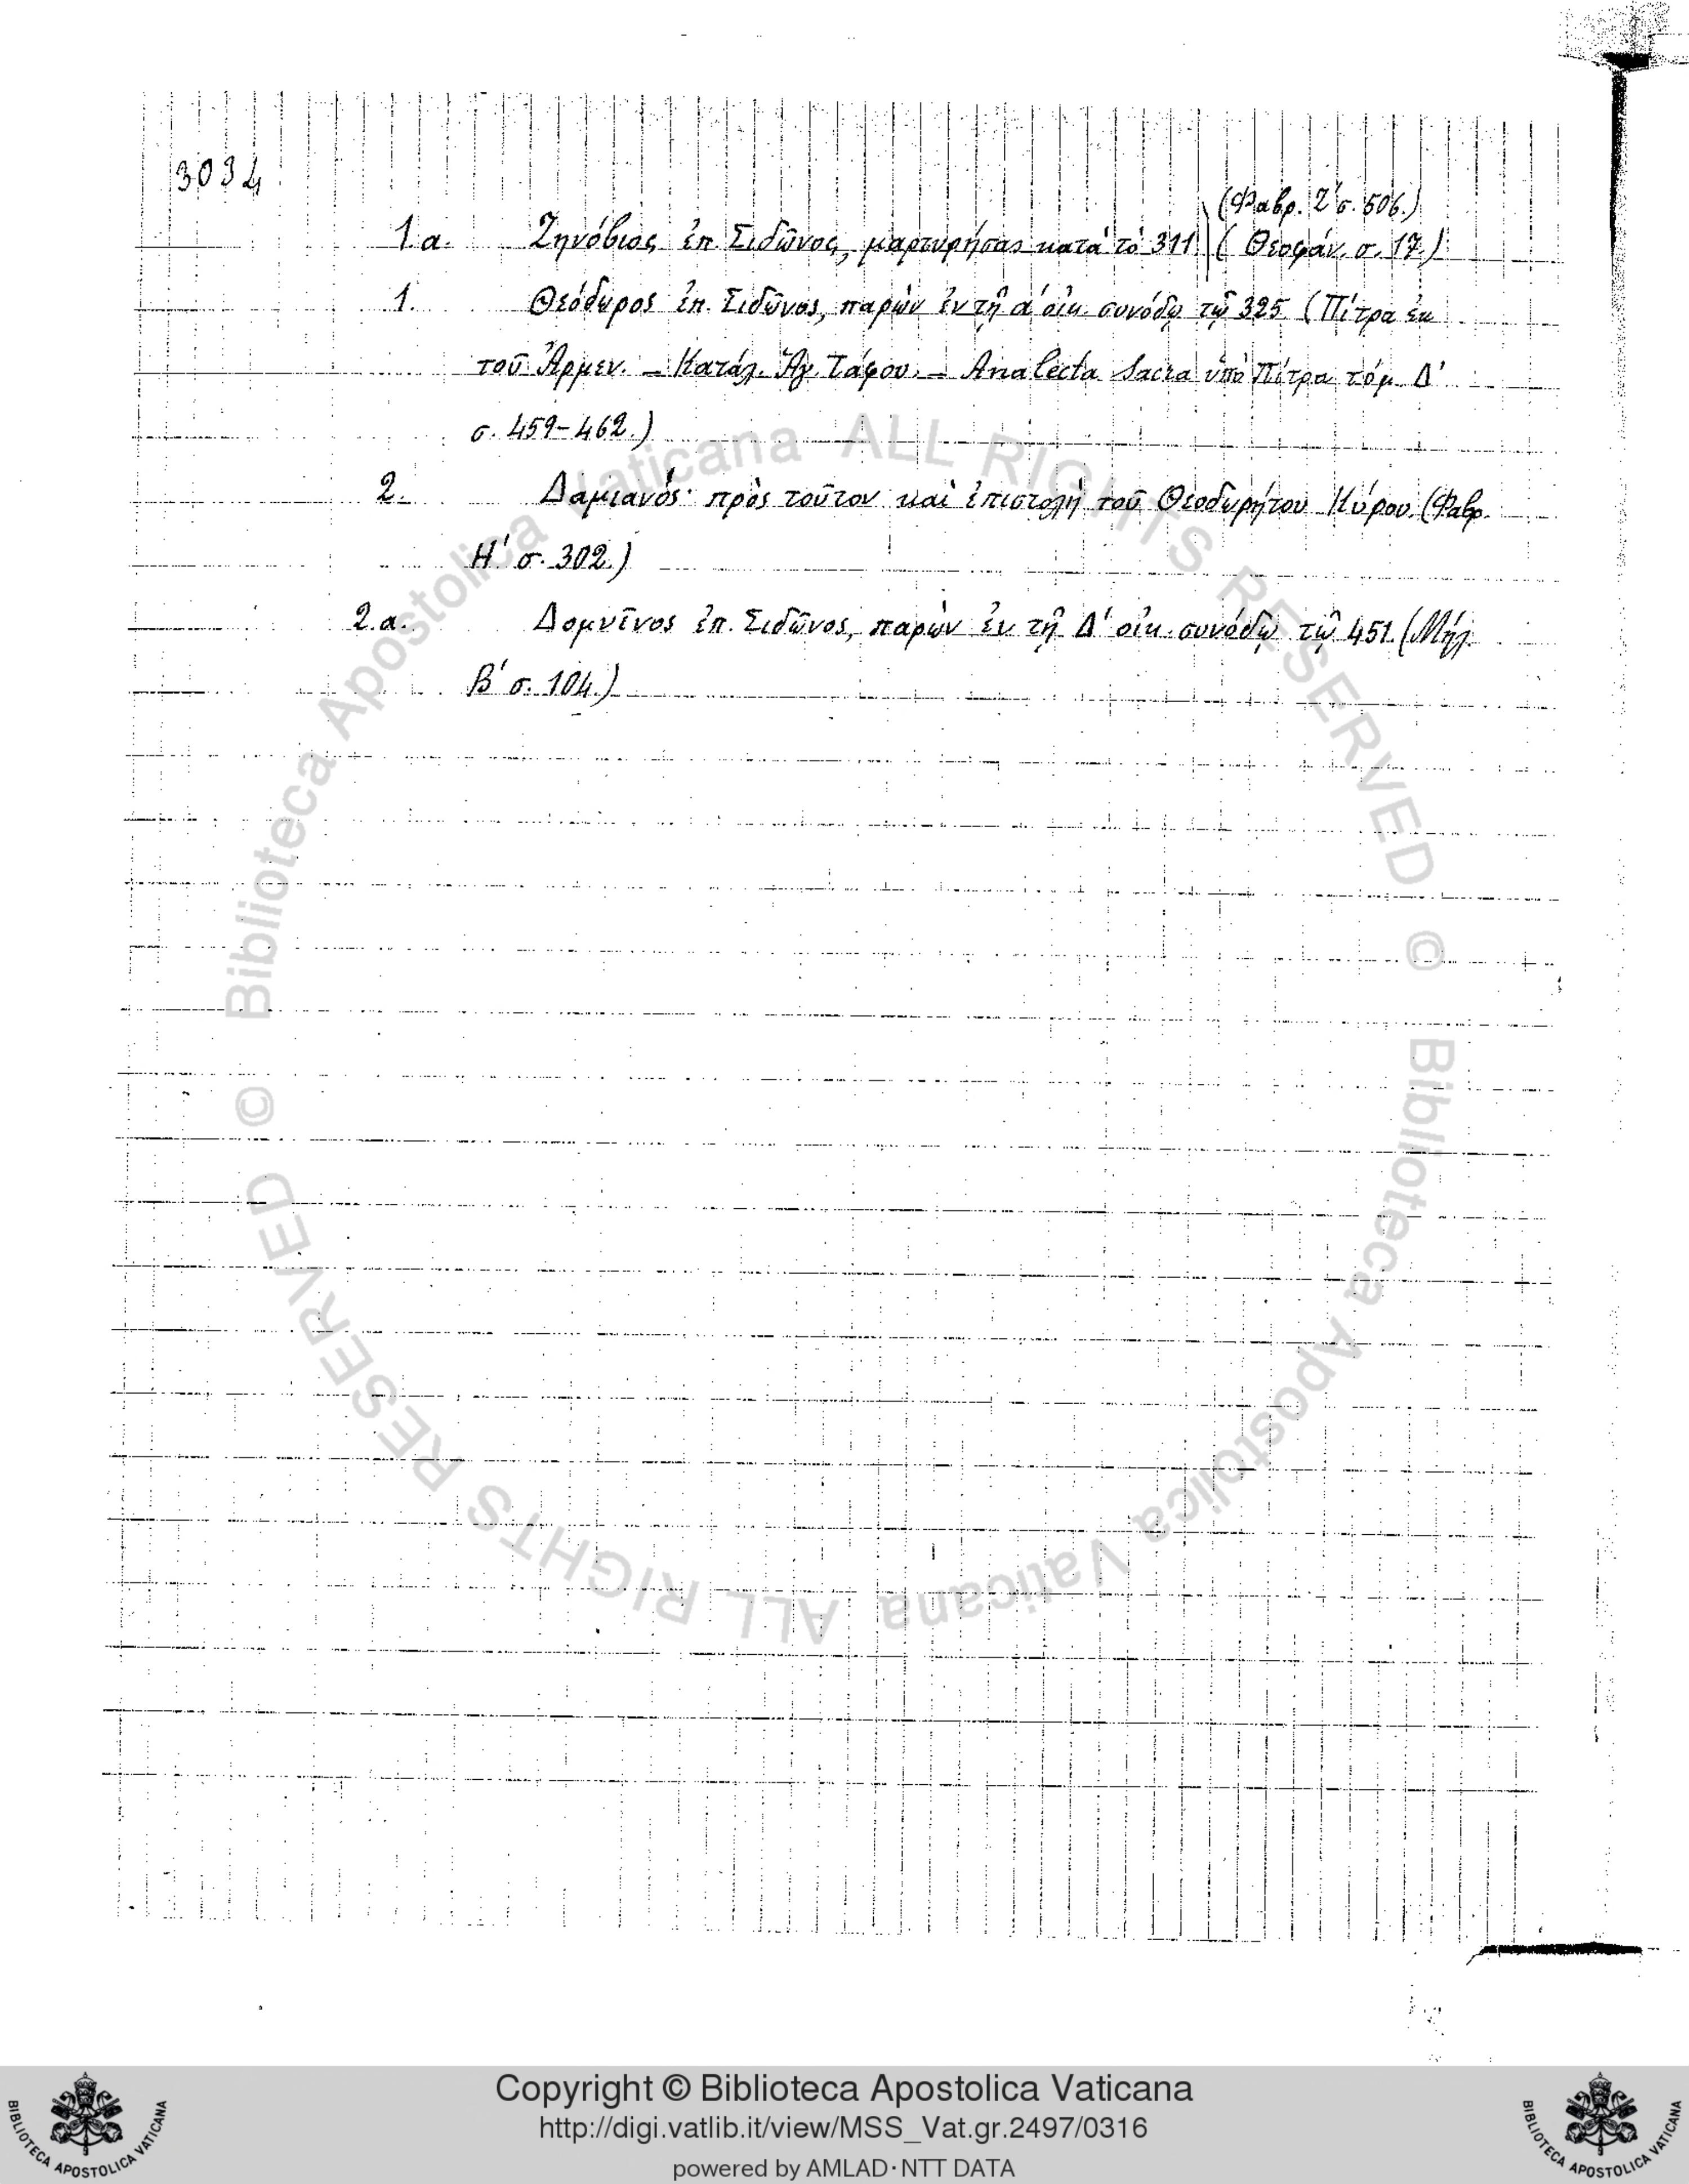 3034
(Φαβρ. Ζ' σ. 506.)
1.α. Ζηνόβιος ἐπ. Σιδῶνος, μαρτυρήσας κατὰ τὸ 311 (Θεοφάν. σ. 17.)
1. Θεόδωρος ἐπ. Σιδῶνος, παρὼν ἐν τῇ α' οἰκ. συνόδῳ τῷ 325 (Πίτρα ἐκ
τοῦ Ἀρμεν. – Κατάλ. Ἁγ. Τάφου. – Analecta Sacra ὑπὸ Πίτρα τόμ. Δ'
σ. 459-462.)
2. Δαμιανός· πρὸς τοῦτον καὶ ἐπιστολὴ τοῦ Θεοδωρήτου Κύρου. (Φαβρ.
Η' σ. 302.)
2.α. Δομνῖνος ἐπ. Σιδῶνος, παρὼν ἐν τῇ Δ' οἰκ. συνόδῳ τῷ 451. (Μήλ.
Β' σ. 104.)
© Biblioteca Apostolica Vaticana ALL RIGHTS RESERVED
© Biblioteca Apostolica Vaticana ALL RIGHTS RESERVED
Copyright © Biblioteca Apostolica Vaticana
http://digi.vatlib.it/view/MSS_Vat.gr.2497/0316
powered by AMLAD·NTT DATA
BIBLIOTECA APOSTOLICA VATICANA
BIBLIOTECA APOSTOLICA VATICANA